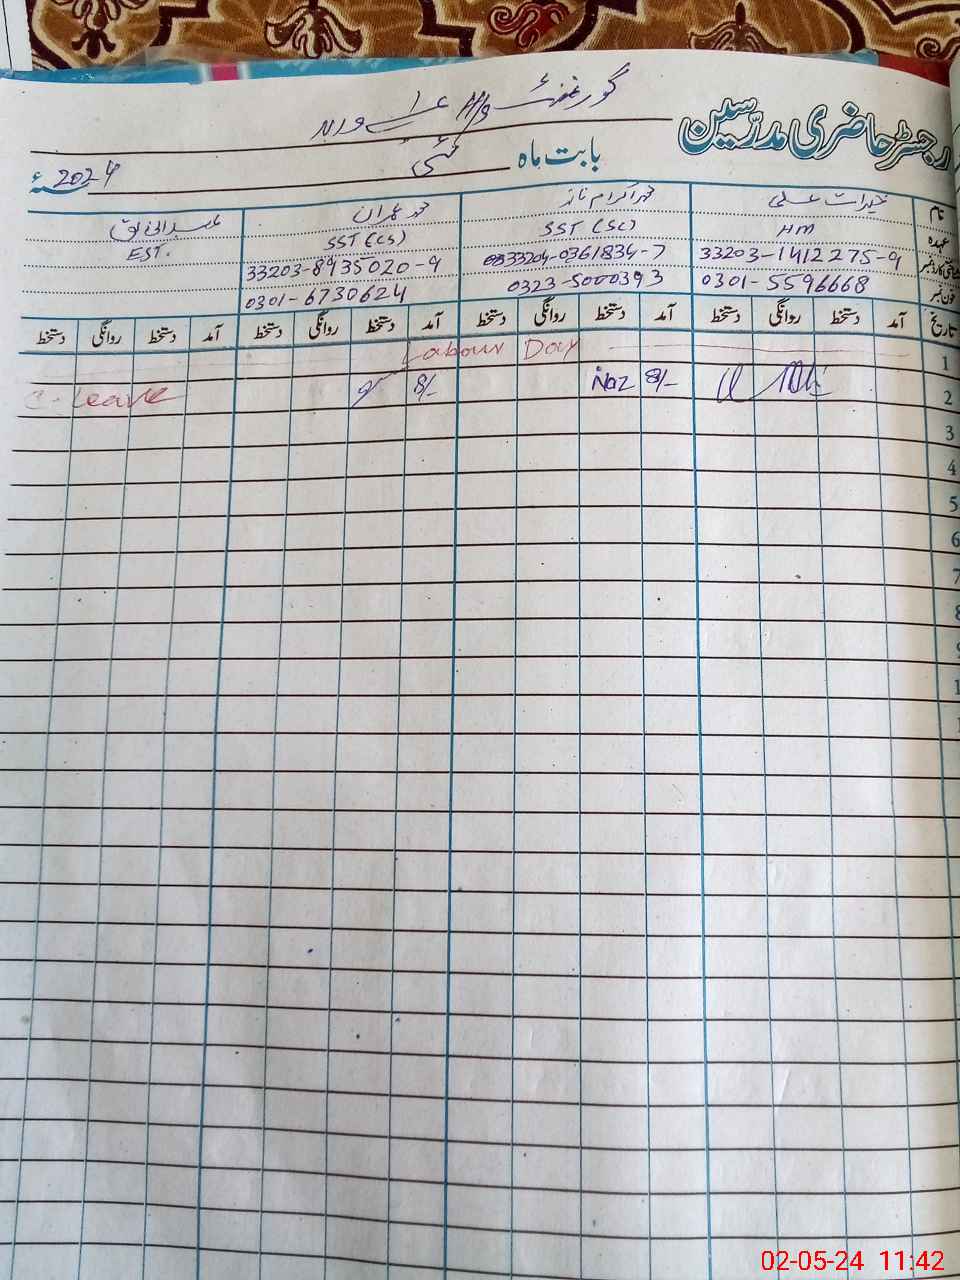 رجسٹر حاضری مدرسین گورنمنٹ
بابت ماہ مئی 2024ء
نام خیرات علی محمد اکرام ناز محمد عمران عبدالخالق
عہدہ HM SST (SC) SST (CS) EST.
شناختی کارڈ نمبر 33203-1412275-9 33204-0361834-7 33203-8935020-9
فون نمبر 0301-5596668 0323-5000393 0301-6730624
تاریخ آمد دستخط روانگی دستخط آمد دستخط روانگی دستخط آمد دستخط روانگی دستخط آمد دستخط روانگی دستخط
1 Labour Day
2 8/- Naz 8/- C-Leave
3
4
5
6
7
8
9
1
1
02-05-24 11:42